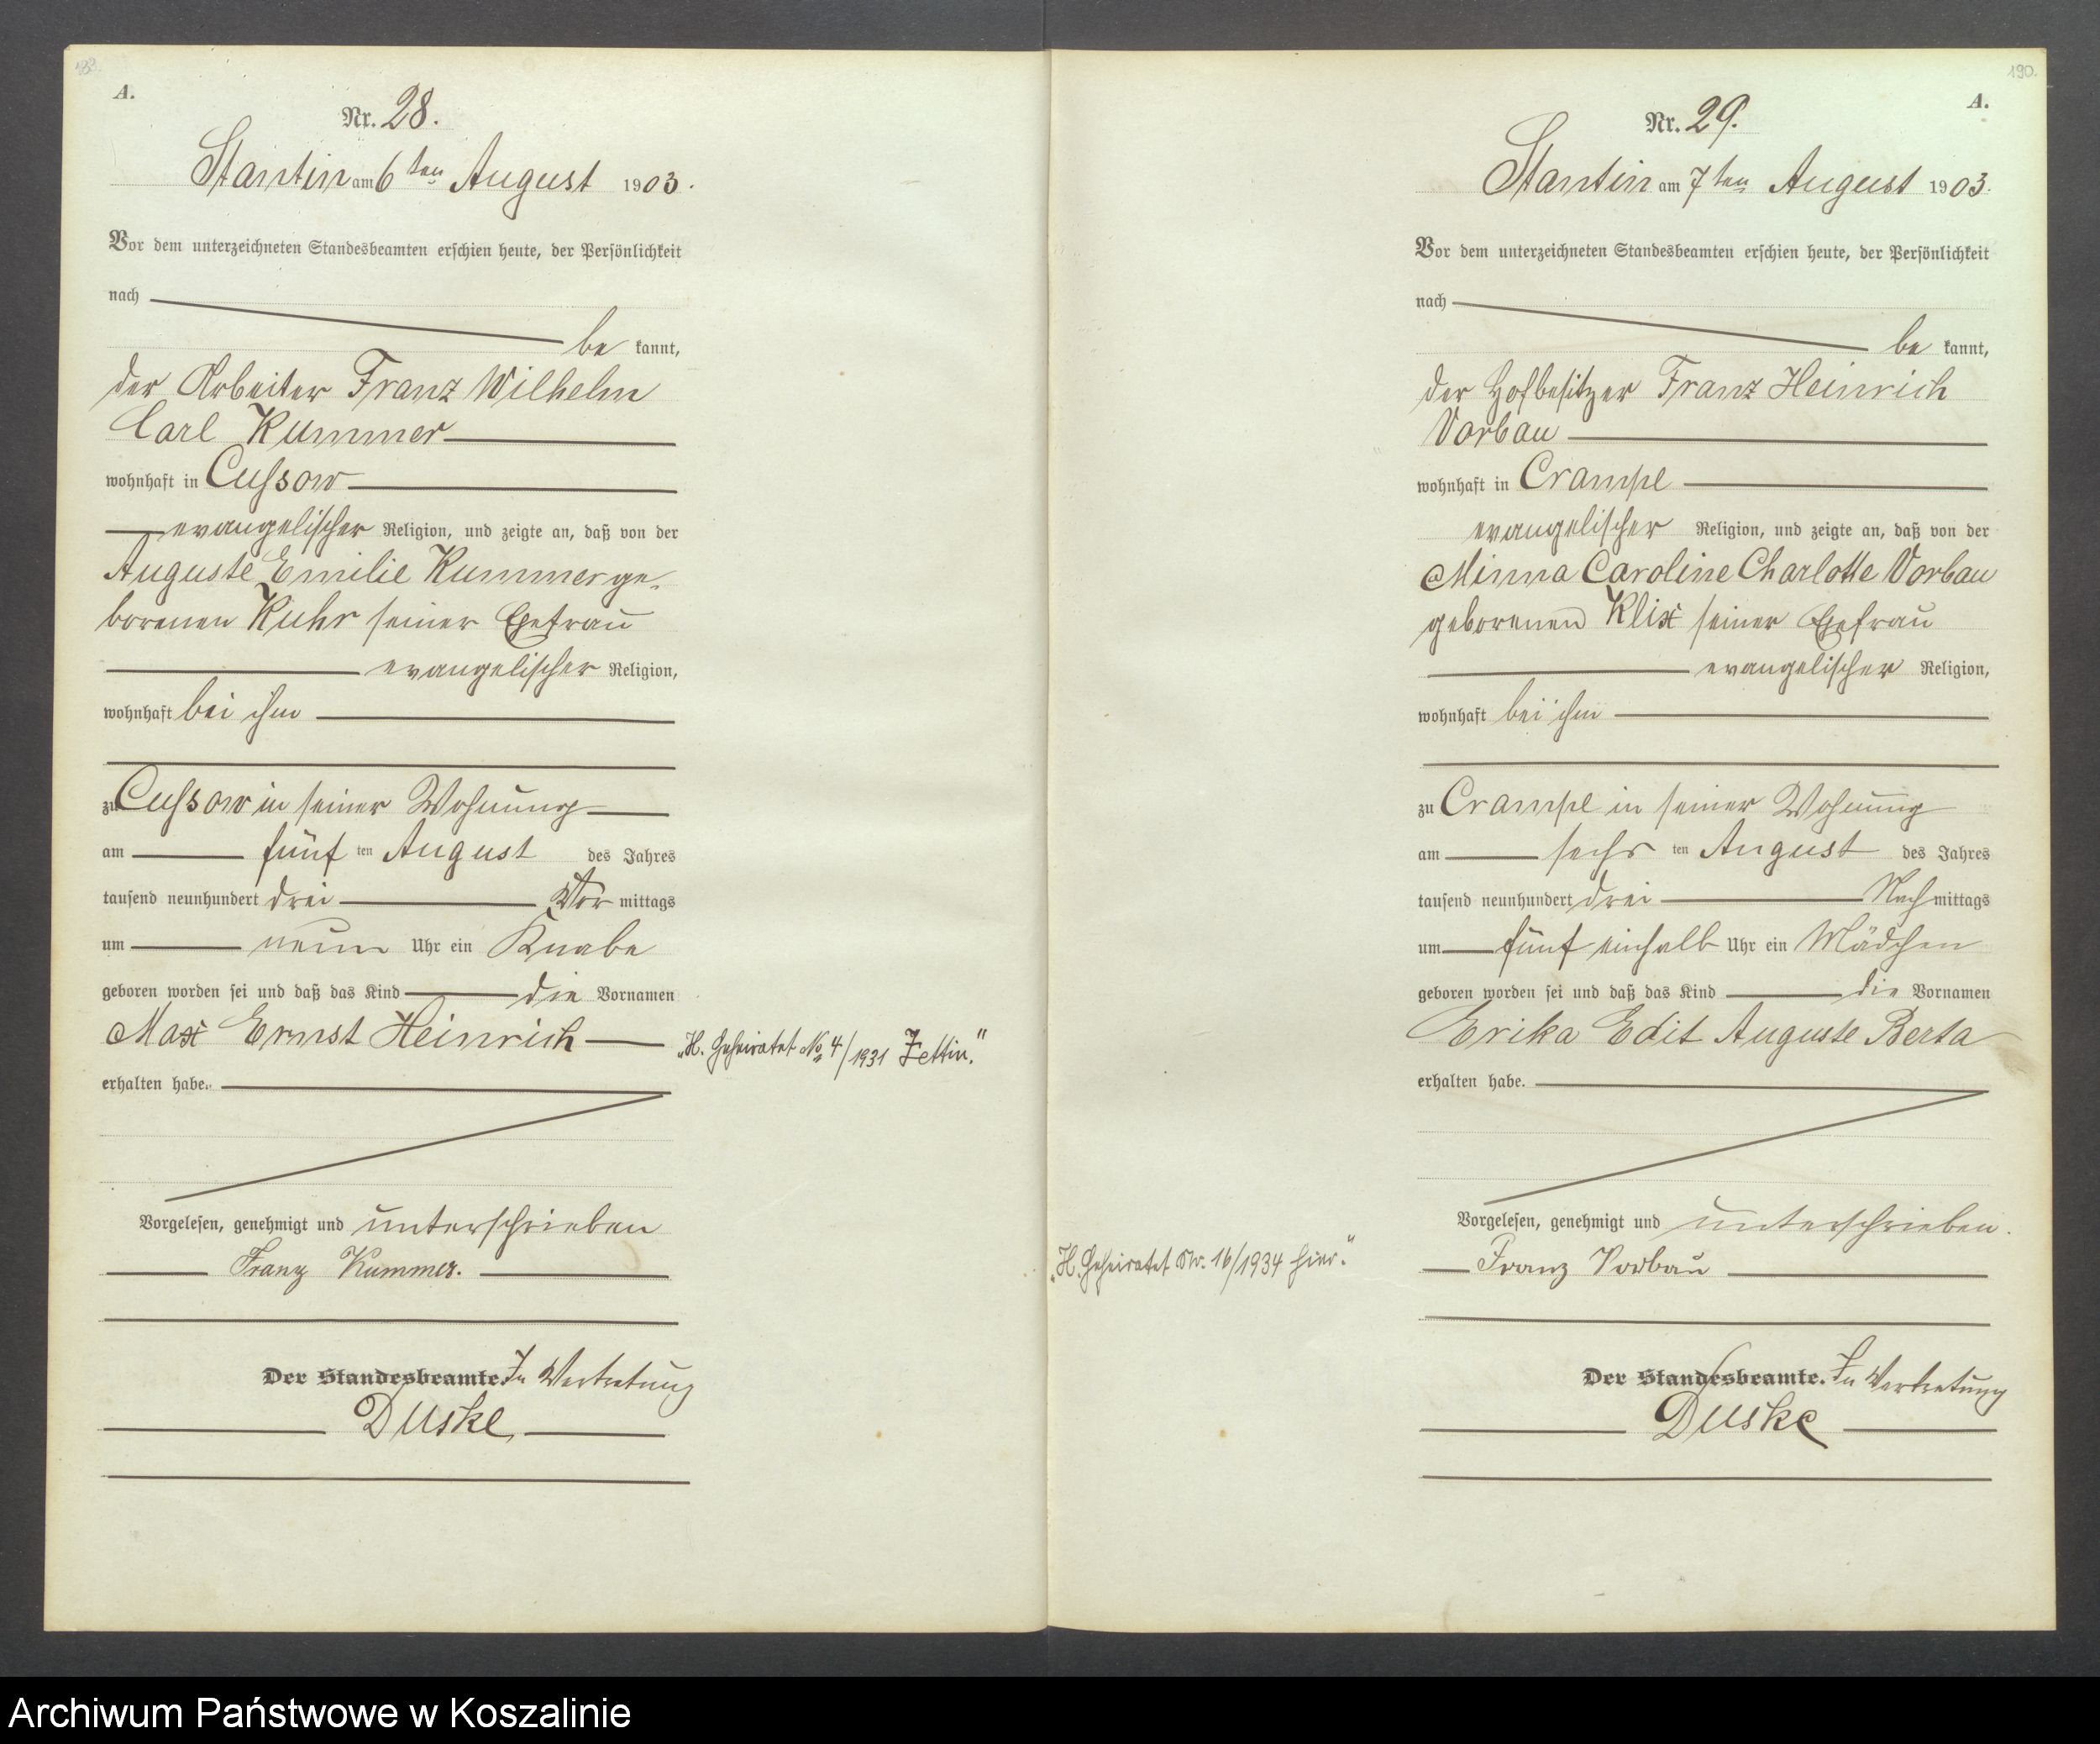 A.
Nr. 28.
Stantin am 6ten August 1903.
Vor dem unterzeichneten Standesbeamten erschien heute, der Persönlichkeit
nach
be kannt,
der Arbeiter Franz Wilhelm
Carl Kummer
wohnhaft in Cussow
evangelischer Religion, und zeigte an, daß von der
Auguste Emilie Kummer ge-
borenen Kuhr seiner Ehefrau
evangelischer Religion,
wohnhaft bei ihm
zu Cussow in seiner Wohnung
am fünf ten August des Jahres
tausend neunhundert drei Vor mittags
um neun Uhr ein Knabe
geboren worden sei und daß das Kind die Vornamen
Max Ernst Heinrich
„H. Geheiratet No 4/1931 Zettin.“
erhalten habe.
Vorgelesen, genehmigt und unterschrieben
Franz Kummer.
Der Standesbeamte. In Vertretung
Duske
190.
A.
Nr. 29.
Stantin am 7ten August 1903.
Vor dem unterzeichneten Standesbeamten erschien heute, der Persönlichkeit
nach
be kannt,
der Hofbesitzer Franz Heinrich
Vorbau
wohnhaft in Crampe
evangelischer Religion, und zeigte an, daß von der
Minna Caroline Charlotte Vorbau
geborenen Klix seiner Ehefrau
evangelischer Religion,
wohnhaft bei ihm
zu Crampe in seiner Wohnung
am sechs ten August des Jahres
tausend neunhundert drei Nach mittags
um fünf einhalb Uhr ein Mädchen
geboren worden sei und daß das Kind die Vornamen
Erika Edit Auguste Berta
erhalten habe.
Vorgelesen, genehmigt und unterschrieben.
„H. Geheiratet Nr. 16/1934 hier.“
Franz Vorbau
Der Standesbeamte. In Vertretung
Duske
Archiwum Państwowe w Koszalinie